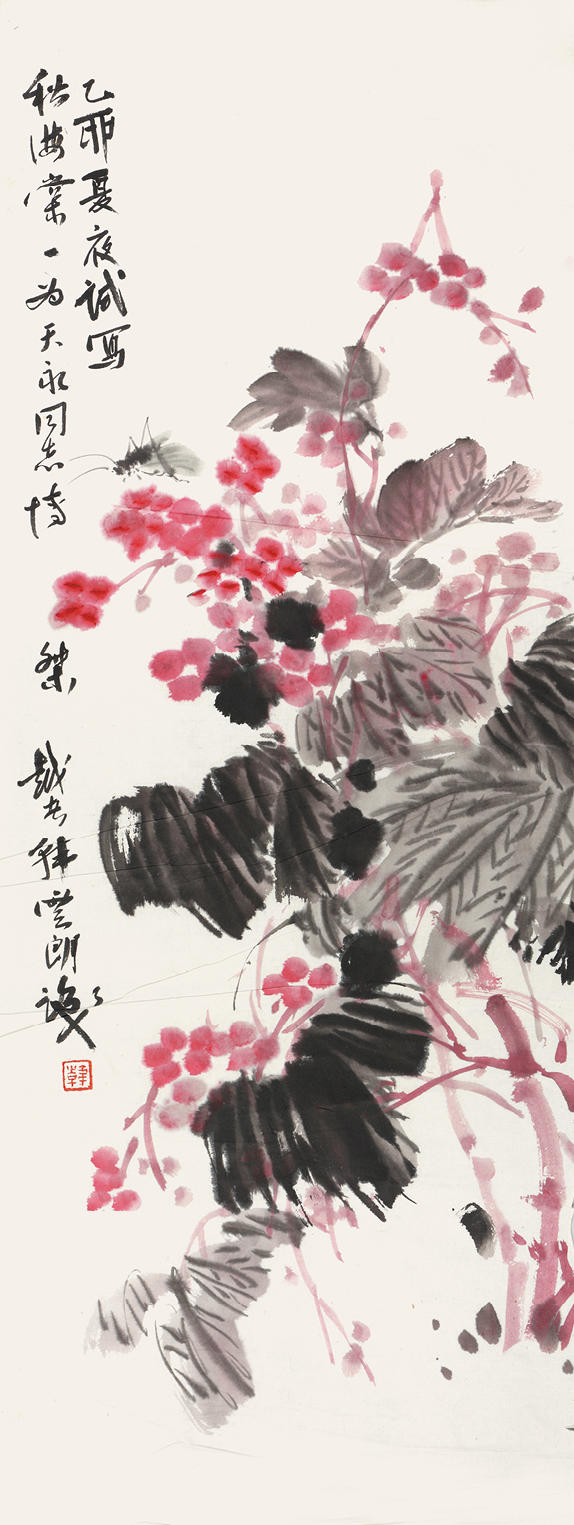 乙卯夏夜试写
秋海棠一为天永同志博 粲 韩云朗
韩